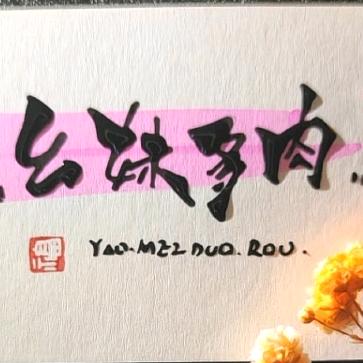 幺妹多肉
YAO.MEI DUO.ROU.